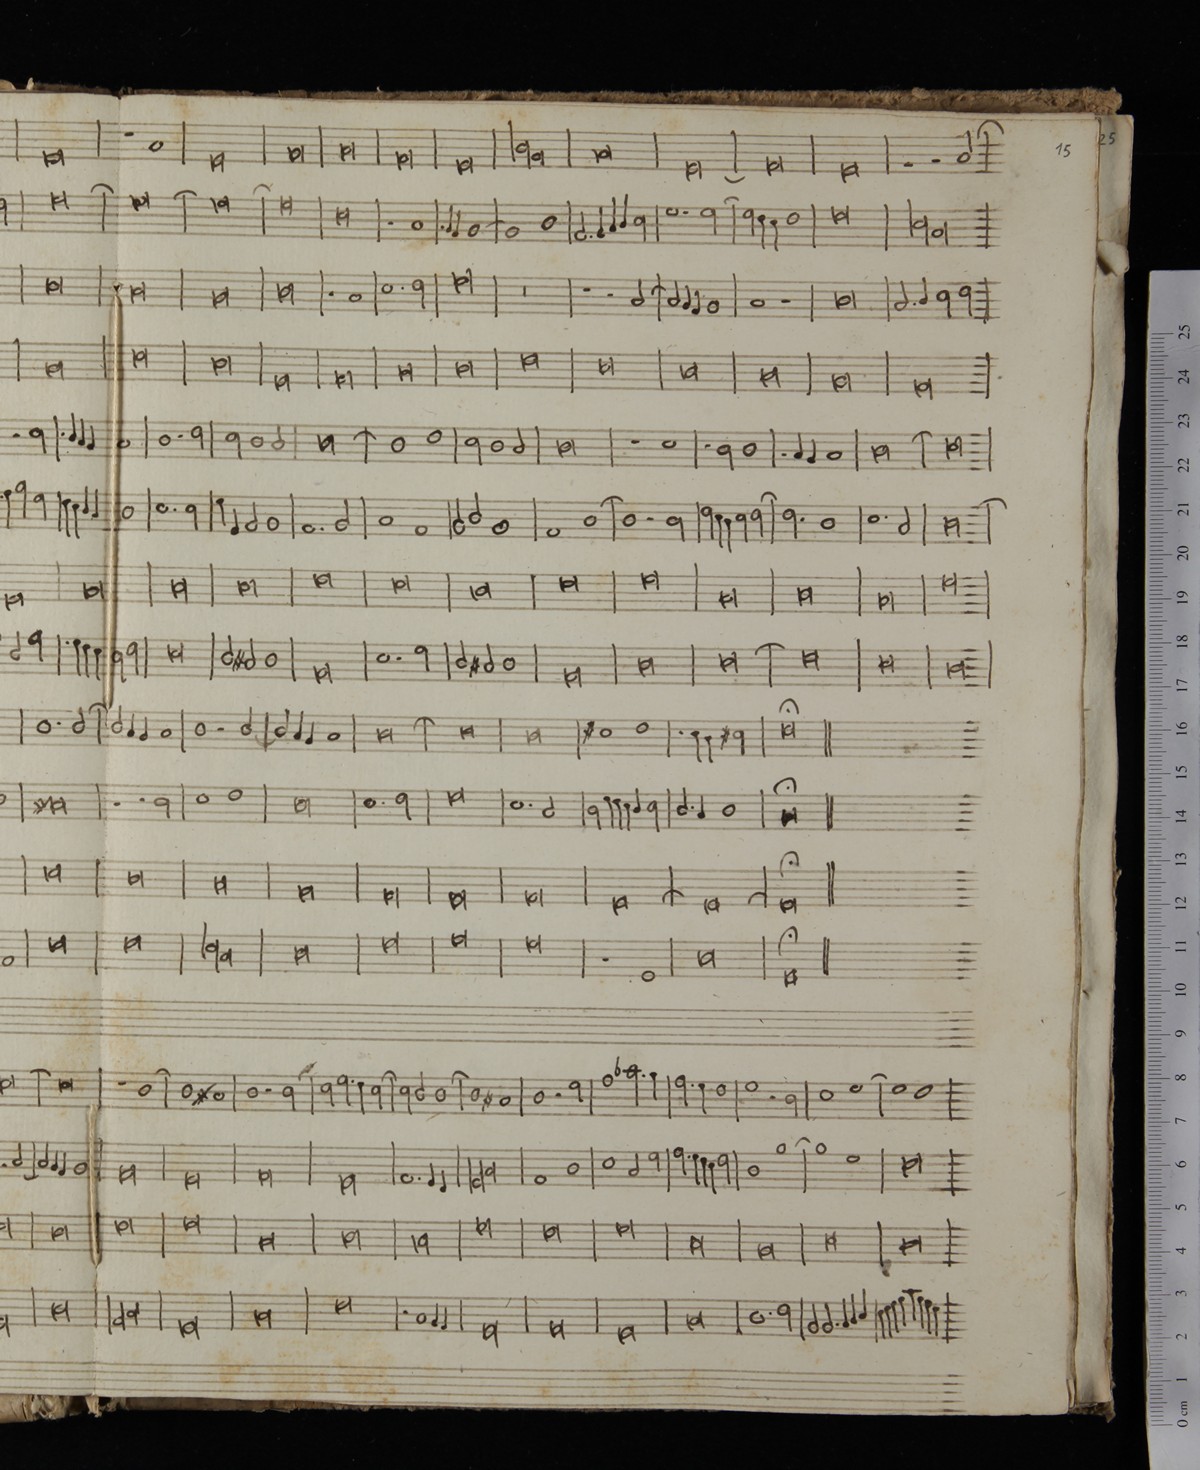 15
25
25
24
23
22
21
20
19
18
17
16
15
14
13
12
11
10
9
8
7
6
5
4
3
2
1
0 cm